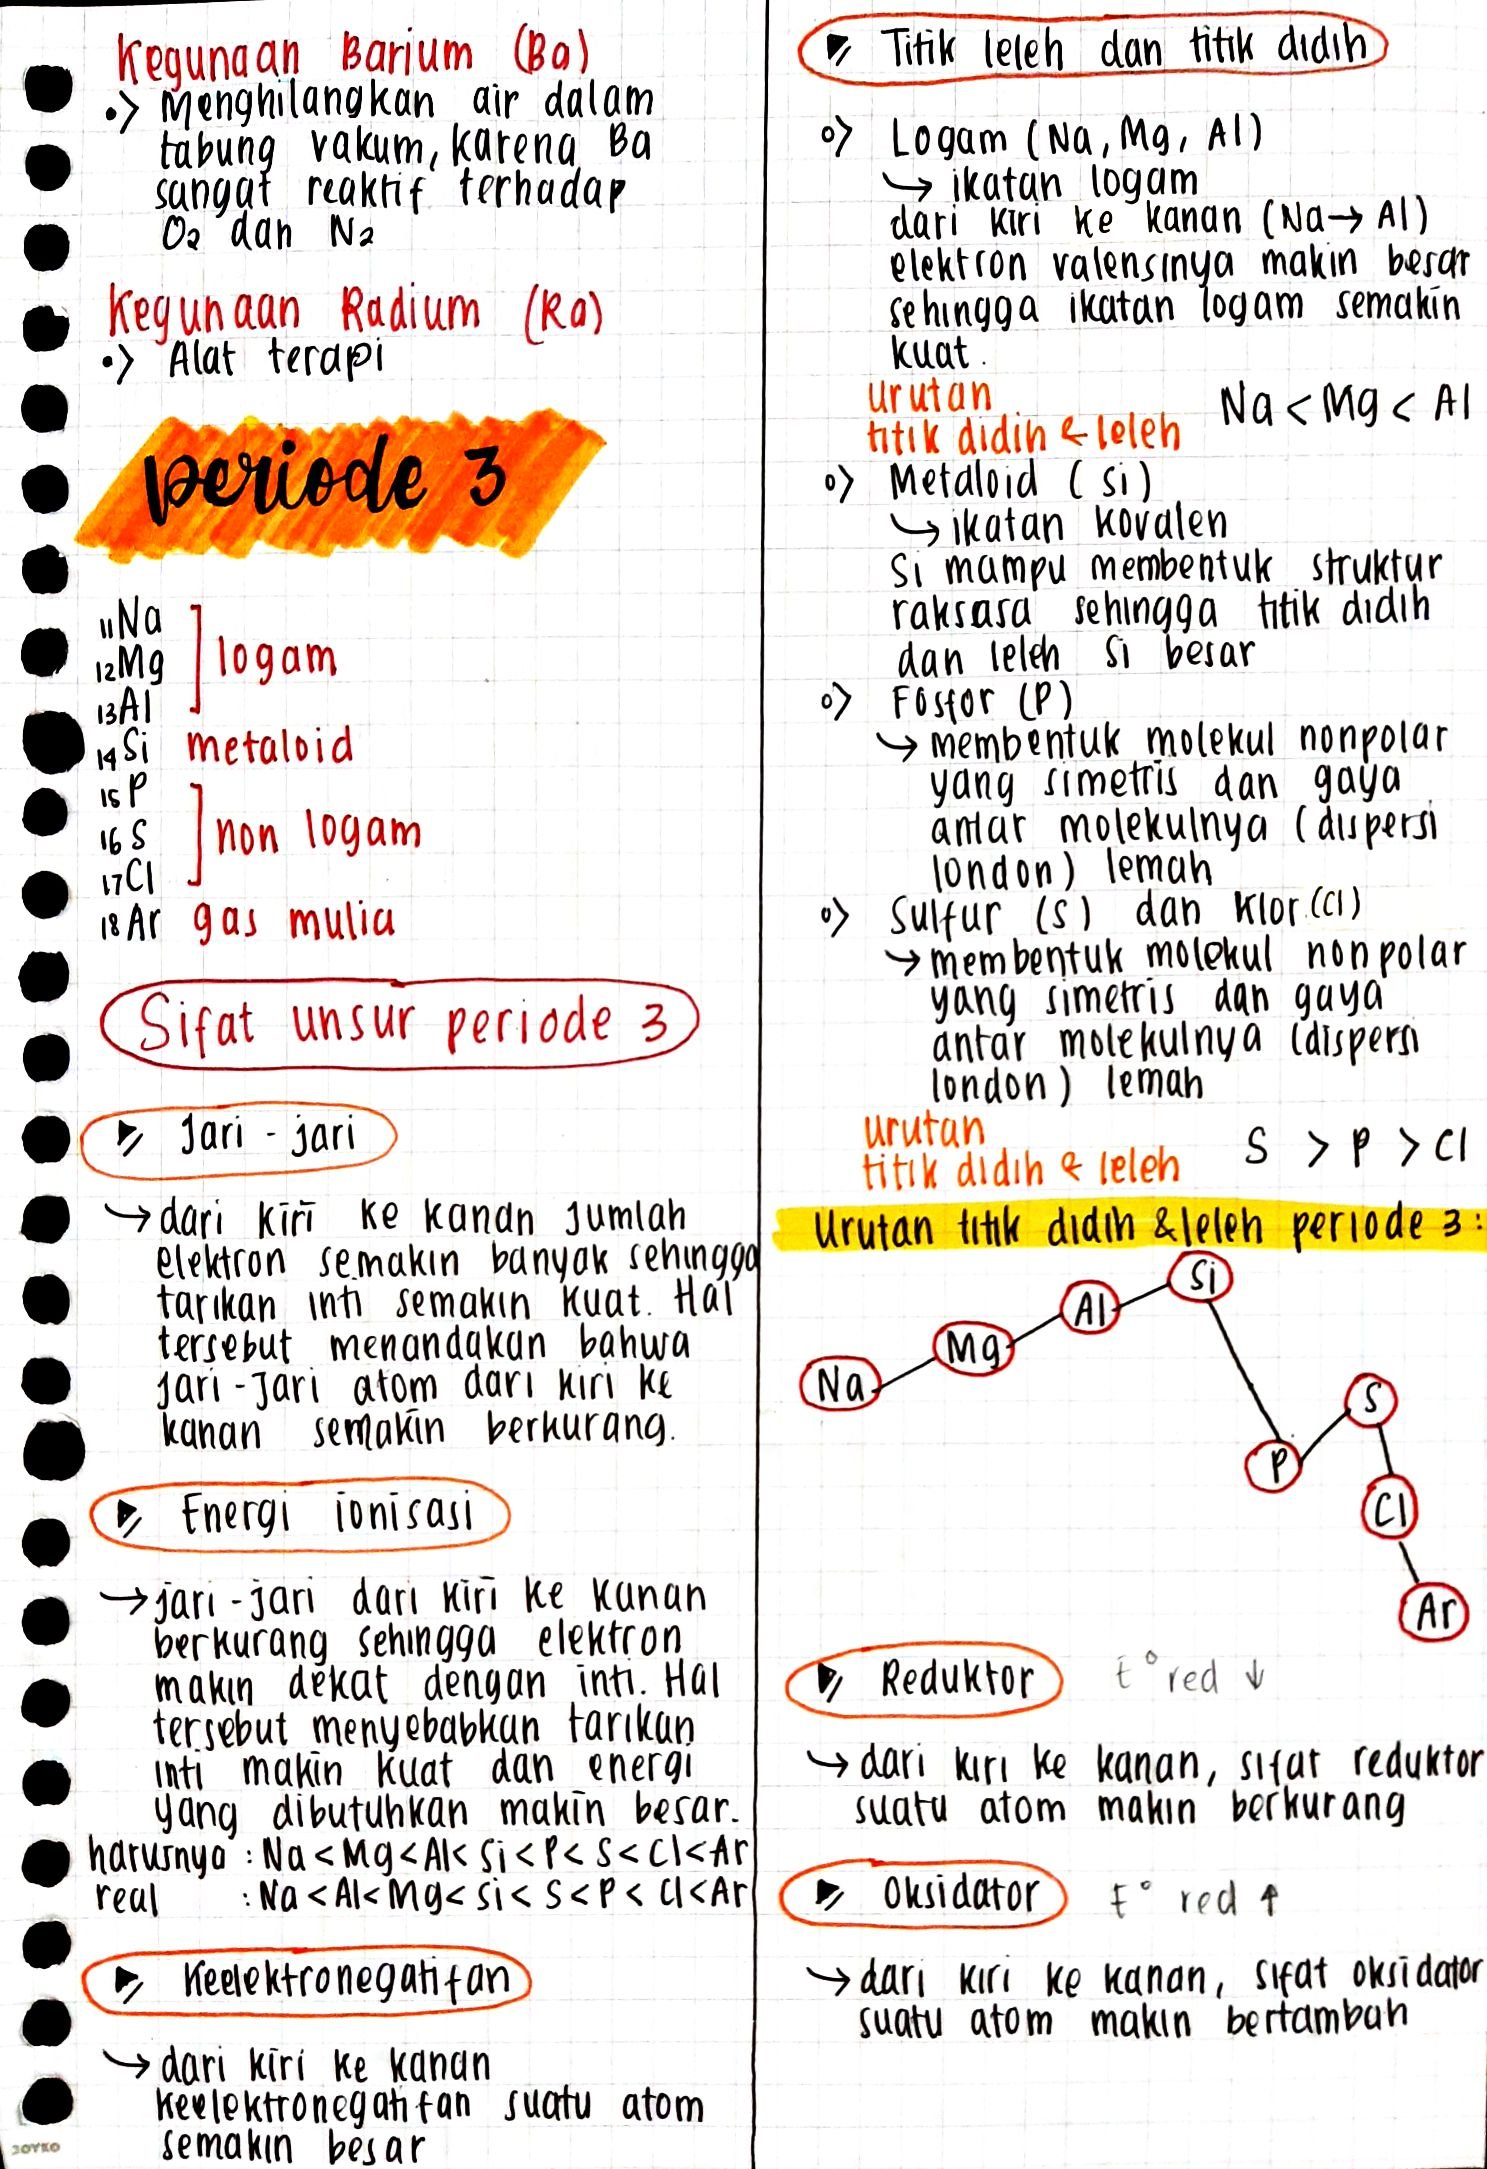 Kegunaan Barium (Ba)
•> Menghilangkan air dalam
tabung vakum, karena Ba
sangat reaktif terhadap
O₂ dan N₂
Kegunaan Radium (Ra)
•> Alat terapi
periode 3
₁₁Na
₁₂Mg logam
₁₃Al
₁₄Si metaloid
₁₅P
₁₆S non logam
₁₇Cl
₁₈Ar gas mulia
Sifat unsur periode 3
Jari - jari
→ dari kiri ke kanan jumlah
elektron semakin banyak sehingga
tarikan inti semakin kuat. Hal
tersebut menandakan bahwa
jari-jari atom dari kiri ke
kanan semakin berkurang.
Energi ionisasi
→ jari-jari dari kiri ke kanan
berkurang sehingga elektron
makin dekat dengan inti. Hal
tersebut menyebabkan tarikan
inti makin kuat dan energi
yang dibutuhkan makin besar.
harusnya : Na < Mg < Al < Si < P < S < Cl < Ar
real : Na < Al < Mg < Si < S < P < Cl < Ar
Keelektronegatifan
→ dari kiri ke kanan
keelektronegatifan suatu atom
semakin besar
JOYKO
Titik leleh dan titik didih
o> Logam (Na, Mg, Al)
↪ ikatan logam
dari kiri ke kanan (Na → Al)
elektron valensinya makin besar
sehingga ikatan logam semakin
kuat.
urutan
titik didih & leleh Na < Mg < Al
o> Metaloid (Si)
↪ ikatan kovalen
Si mampu membentuk struktur
raksasa sehingga titik didih
dan leleh Si besar
o> Fosfor (P)
↪ membentuk molekul nonpolar
yang simetris dan gaya
antar molekulnya (dispersi
london) lemah
o> Sulfur (S) dan Klor (Cl)
↪ membentuk molekul nonpolar
yang simetris dan gaya
antar molekulnya (dispersi
london) lemah
urutan
titik didih & leleh S > P > Cl
Urutan titik didih & leleh periode 3 :
Si
Al
Mg
Na
S
P
Cl
Ar
Reduktor t° red ↓
→ dari kiri ke kanan, sifat reduktor
suatu atom makin berkurang
Oksidator t° red ↑
→ dari kiri ke kanan, sifat oksidator
suatu atom makin bertambah